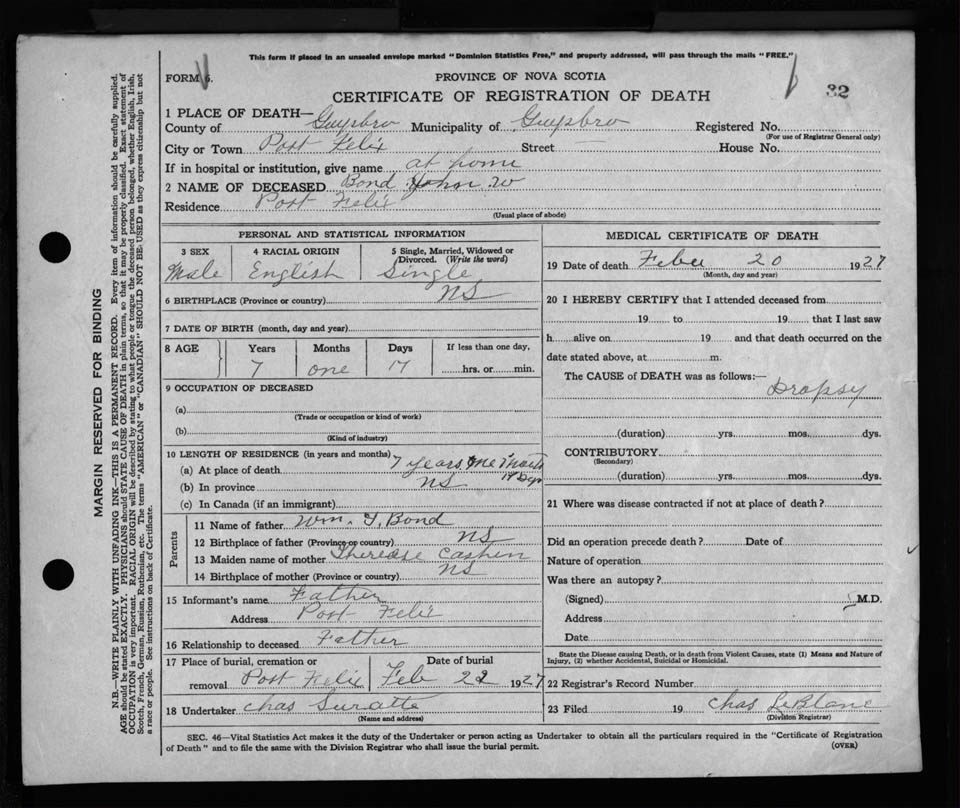 This form if placed in an unsealed envelope marked "Dominion Statistics Free," and properly addressed, will pass through the mails "FREE."
FORM 6.
PROVINCE OF NOVA SCOTIA
32
CERTIFICATE OF REGISTRATION OF DEATH
1 PLACE OF DEATH—
County of Guysbro Municipality of Guysbro Registered No.
(For use of Registrar General only)
City or Town Port Felix Street — House No.
If in hospital or institution, give name at home
2 NAME OF DECEASED Bond John W
Residence Port Felix
(Usual place of abode)
PERSONAL AND STATISTICAL INFORMATION
3 SEX 4 RACIAL ORIGIN 5 Single, Married, Widowed or Divorced. (Write the word)
Male English Single
6 BIRTHPLACE (Province or country) NS
7 DATE OF BIRTH (month, day and year)
8 AGE Years Months Days If less than one day,
7 one 17 hrs. or min.
9 OCCUPATION OF DECEASED
(a)
(Trade or occupation or kind of work)
(b)
(Kind of industry)
10 LENGTH OF RESIDENCE (in years and months)
(a) At place of death 7 years one Month
17 Days
(b) In province NS
(c) In Canada (if an immigrant)
Parents
11 Name of father Wm. T. Bond
12 Birthplace of father (Province or country) NS
13 Maiden name of mother Therease Cashen
14 Birthplace of mother (Province or country) NS
15 Informant's name Father
Address Port Felix
16 Relationship to deceased Father
17 Place of burial, cremation or removal Port Felix Date of burial Feb 22 1927
18 Undertaker Chas Suratte
(Name and address)
MEDICAL CERTIFICATE OF DEATH
19 Date of death 20 1927
(Month, day and year)
20 I HEREBY CERTIFY that I attended deceased from
19 to 19 that I last saw
h alive on 19 and that death occurred on the
date stated above, at m.
The CAUSE of DEATH was as follows:—
Dropsy
(duration) yrs. mos. dys.
CONTRIBUTORY
(Secondary)
(duration) yrs. mos. dys.
21 Where was disease contracted if not at place of death?
Did an operation precede death? Date of
Nature of operation
Was there an autopsy?
(Signed) M.D.
Address
Date
State the Disease causing Death, or in death from Violent Causes, state (1) Means and Nature of
Injury, (2) whether Accidental, Suicidal or Homicidal.
22 Registrar's Record Number
23 Filed 19 Chas LeBlanc
(Division Registrar)
SEC. 46—Vital Statistics Act makes it the duty of the Undertaker or person acting as Undertaker to obtain all the particulars required in the "Certificate of Registration
of Death" and to file the same with the Division Registrar who shall issue the burial permit.
(OVER)
MARGIN RESERVED FOR BINDING
N.B.—WRITE PLAINLY WITH UNFADING INK—THIS IS A PERMANENT RECORD. Every item of information should be carefully supplied.
AGE should be stated EXACTLY. PHYSICIANS should STATE CAUSE OF DEATH in plain terms, so that it may be properly classified. Exact statement of
OCCUPATION is very important. RACIAL ORIGIN will be described by stating to what people or tongue the deceased person belonged, whether English, Irish,
Scotch, French, German, Russian, Ruthenian, etc. The terms "AMERICAN" or "CANADIAN" SHOULD NOT BE USED as they express citizenship but not
a race or people. See instructions on back of Certificate.